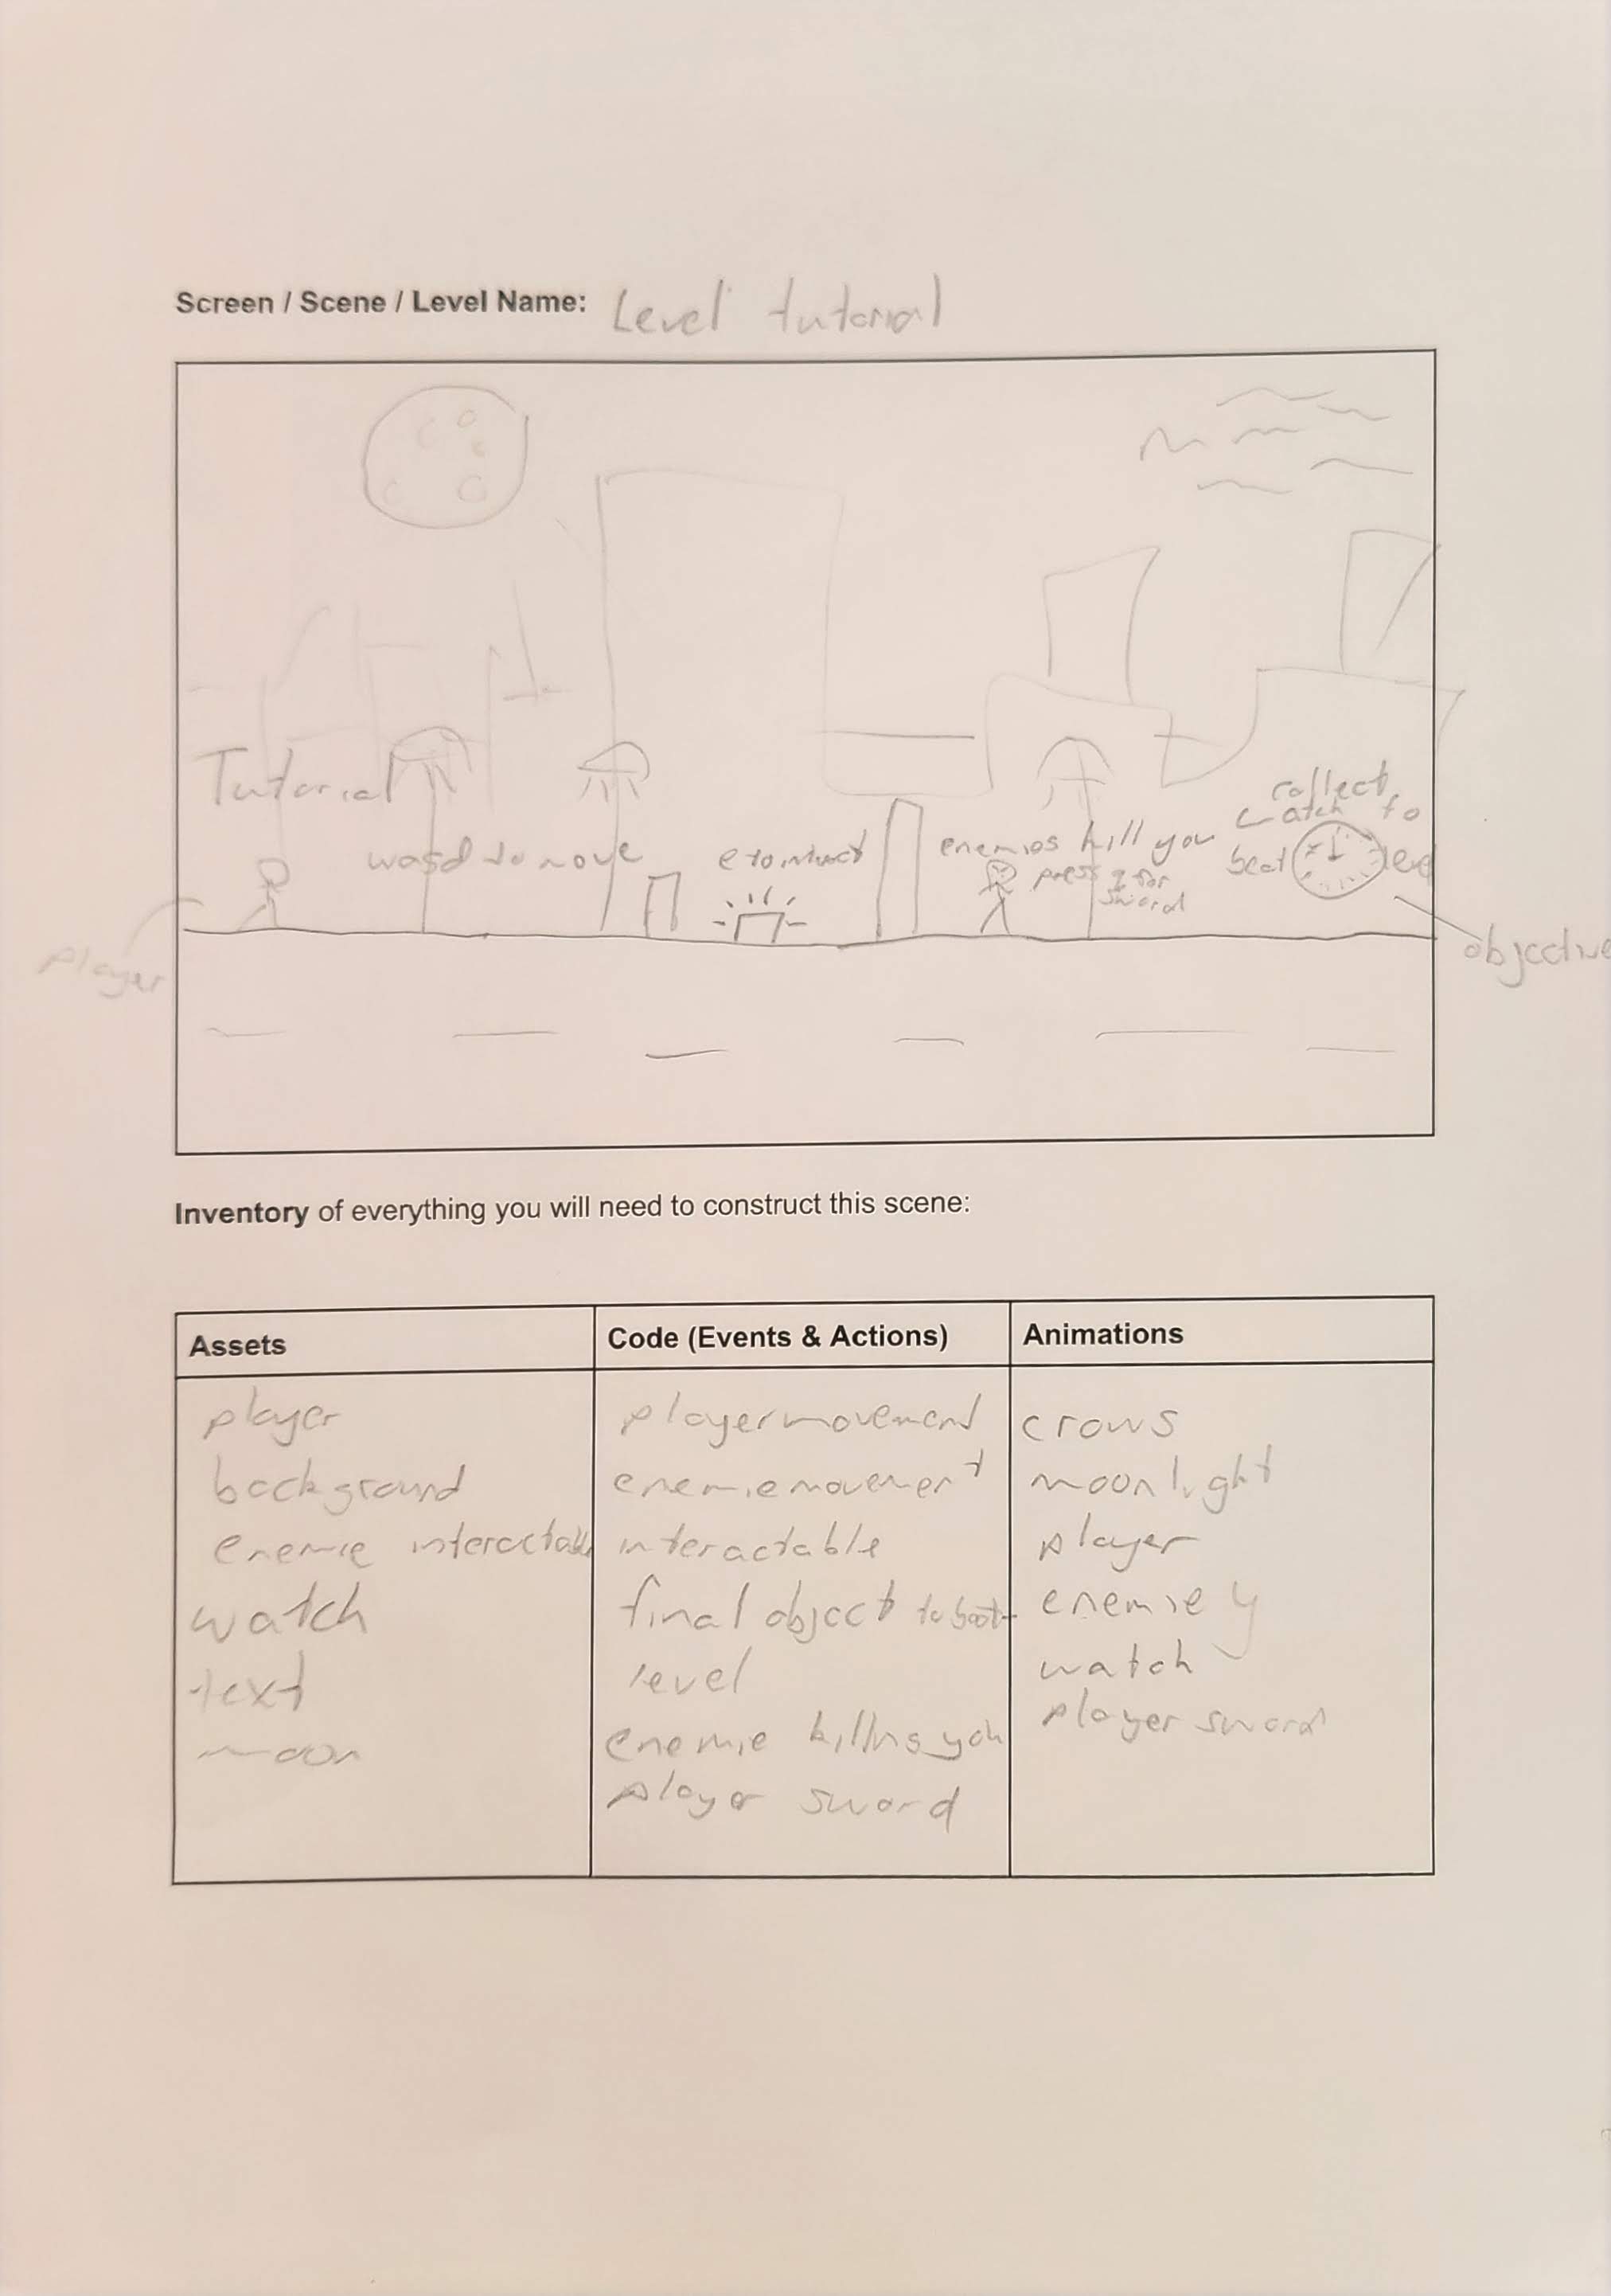 Screen / Scene / Level Name: Level tutorial
Tutorial
wasd to move
e to intract
enemies kill you
press q for
sword
collect
watch to
beat level
player
objective
Inventory of everything you will need to construct this scene:
Assets
player
background
enemie interactable
watch
text
moon
Code (Events & Actions)
player movement
enemie movement
interactable
final object to beat
level
enemie killing you
player sword
Animations
crows
moon light
player
enemie y
watch
player sword